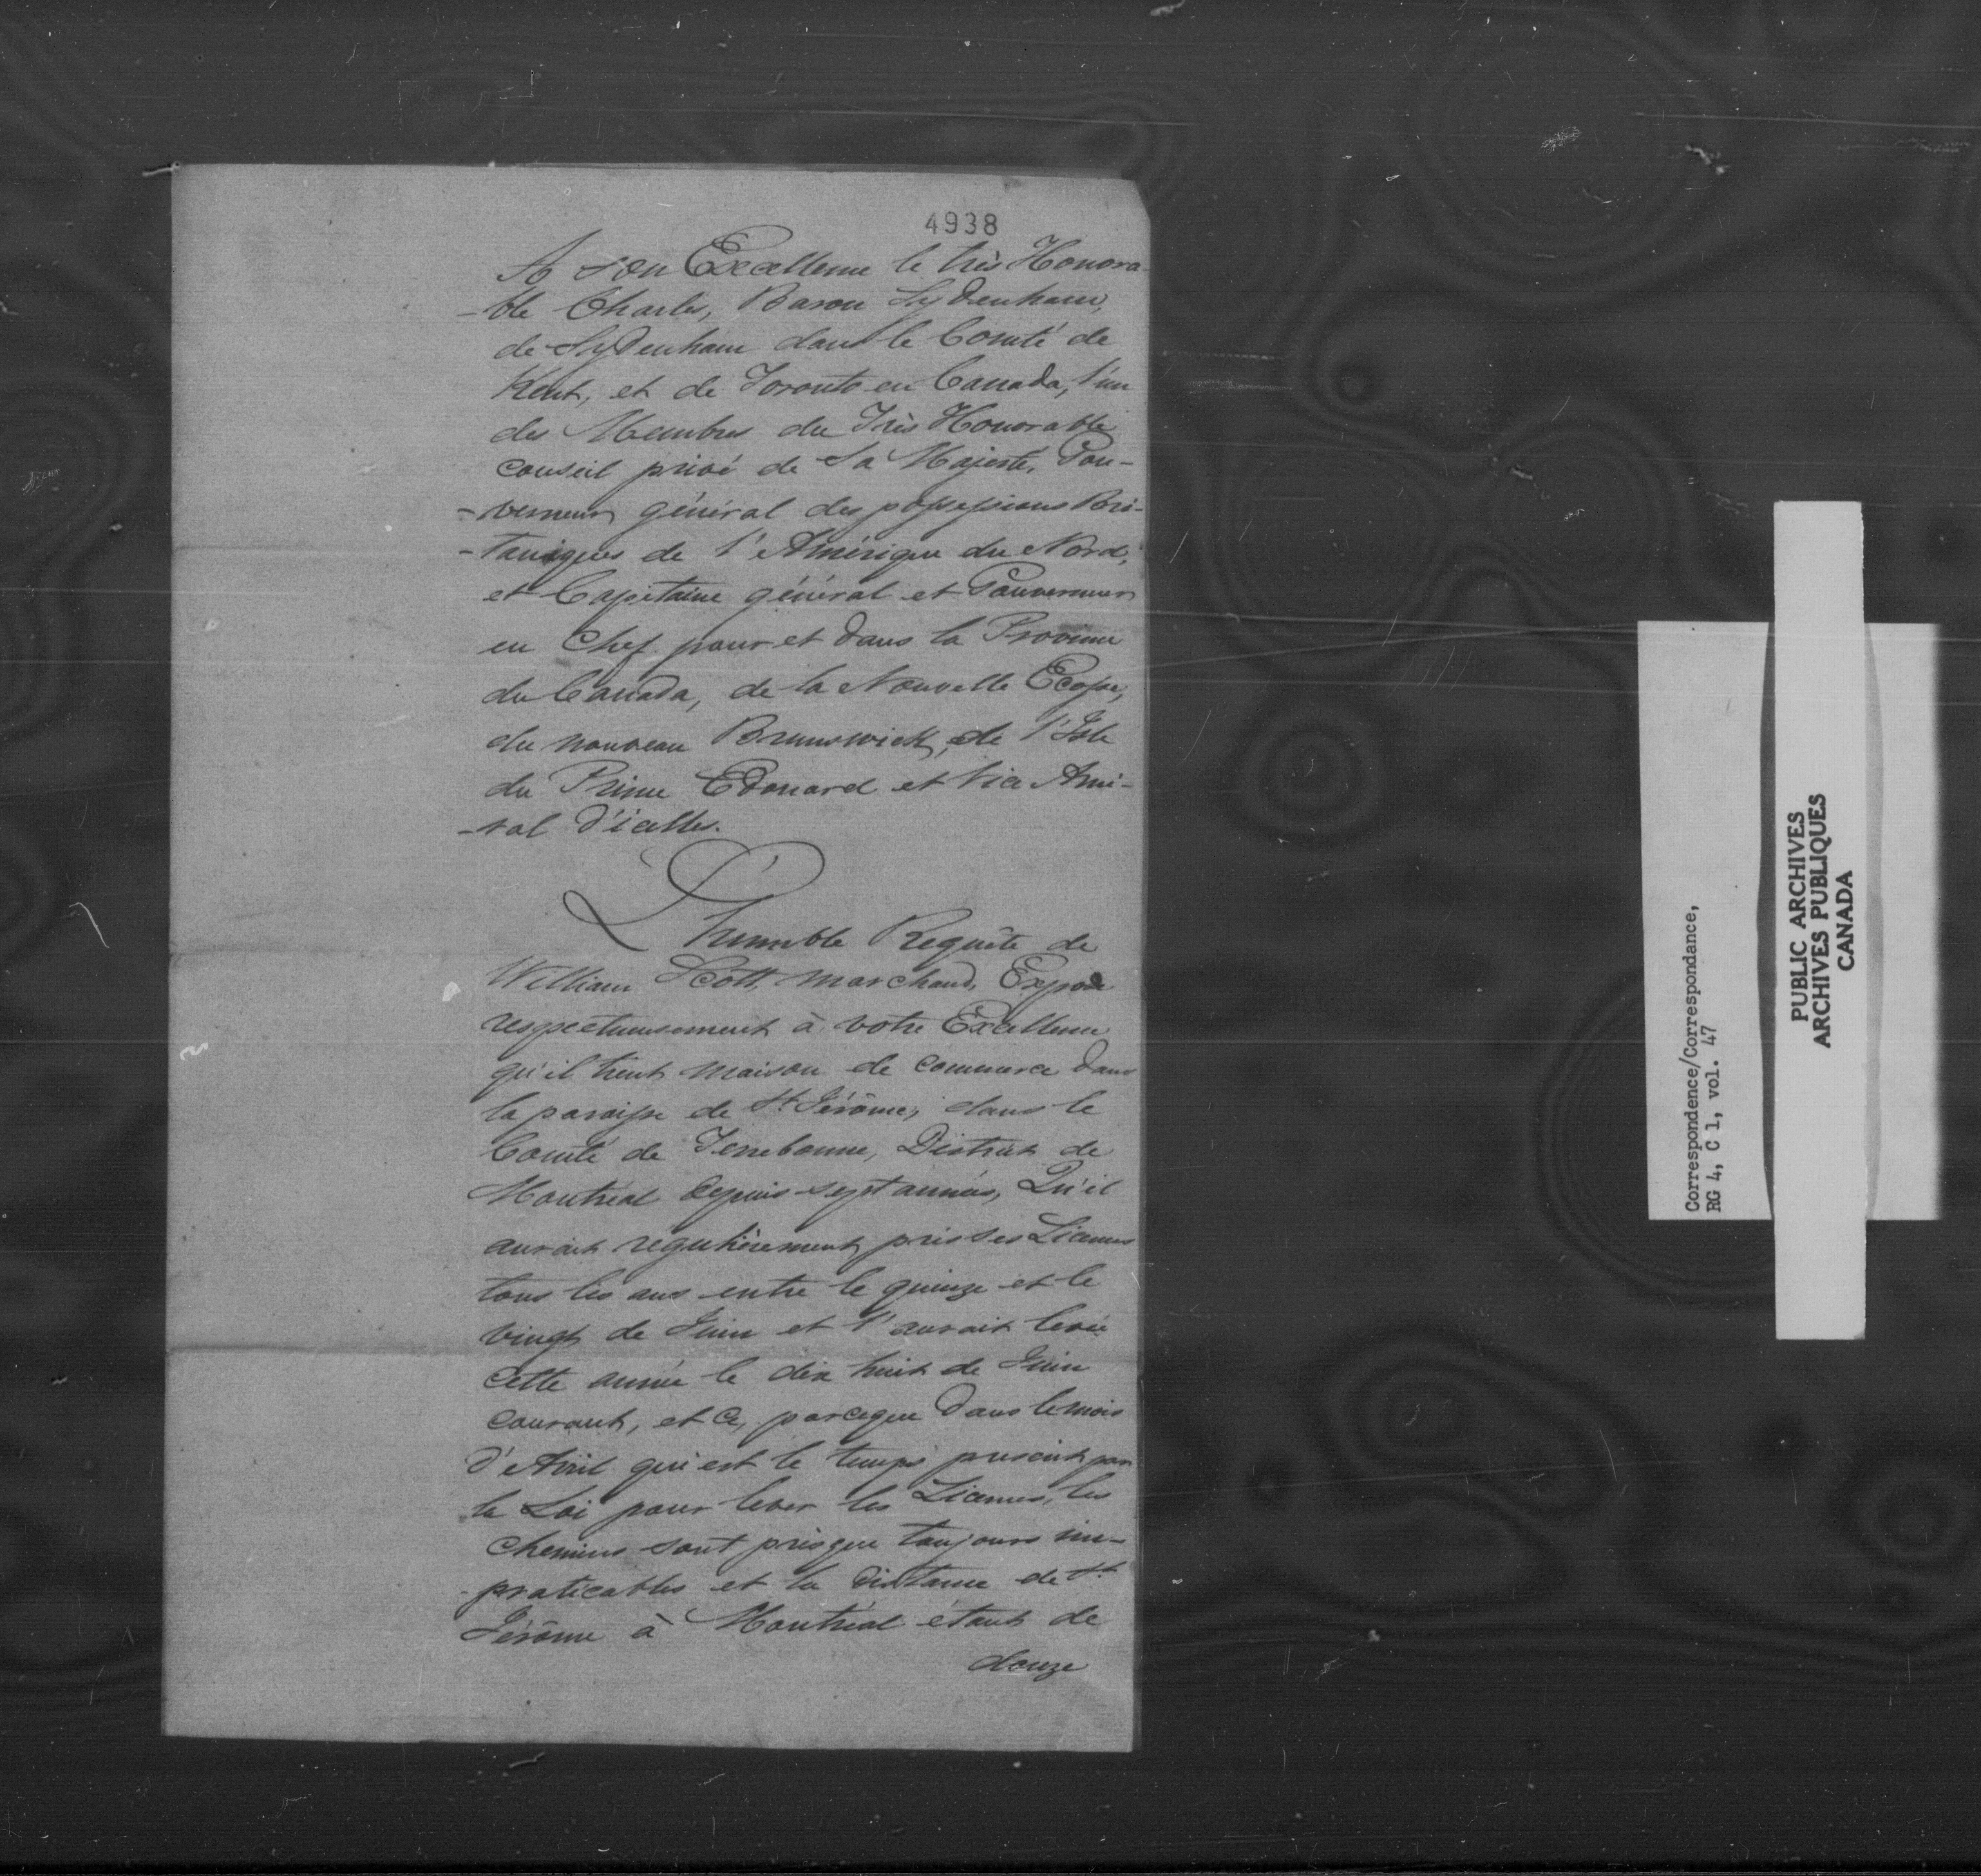 4938
A Son Excellence le très Honora-
-ble Charles, Baron Sydenham,
de Sydenham dans le Comté de
Kent, et de Toronto en Canada, l'un
des Membres du Très Honorable
Conseil privé de Sa Majesté, Gou-
-verneur général des possessions Bri-
-taniques de l'Amérique du Nord,
et Capitaine général et Gouverneur
en Chef pour et dans la Province
du Canada, de la Nouvelle Ecosse,
du nouveau Brunswick, de l'Isle
du Prince Edouard et Vice Ami-
-ral d'icelles.
L'humble Requête de
William Scott, marchand, Expose
respectueusement à votre Excellence
qu'il tient maison de commerce dans
la paroisse de St Jérôme, dans le
Comté de Terrebonne, District de
Montréal depuis sept années, Qu'il
aurait regulièrement pris ses Licences
tous les ans entre le quinze et le
vingt de Juin et l'aurait levée
cette année le dix huit de Juin
courant, et ce, parceque dans le mois
d'Avril qui est le temps prescrit par
la Loi pour lever les Licences, les
chemins sont presque toujours im-
-praticables et la distance de St
Jérôme à Montréal étant de
douze
Correspondence/Correspondance,
RG 4, C 1, vol. 47
PUBLIC ARCHIVES
ARCHIVES PUBLIQUES
CANADA